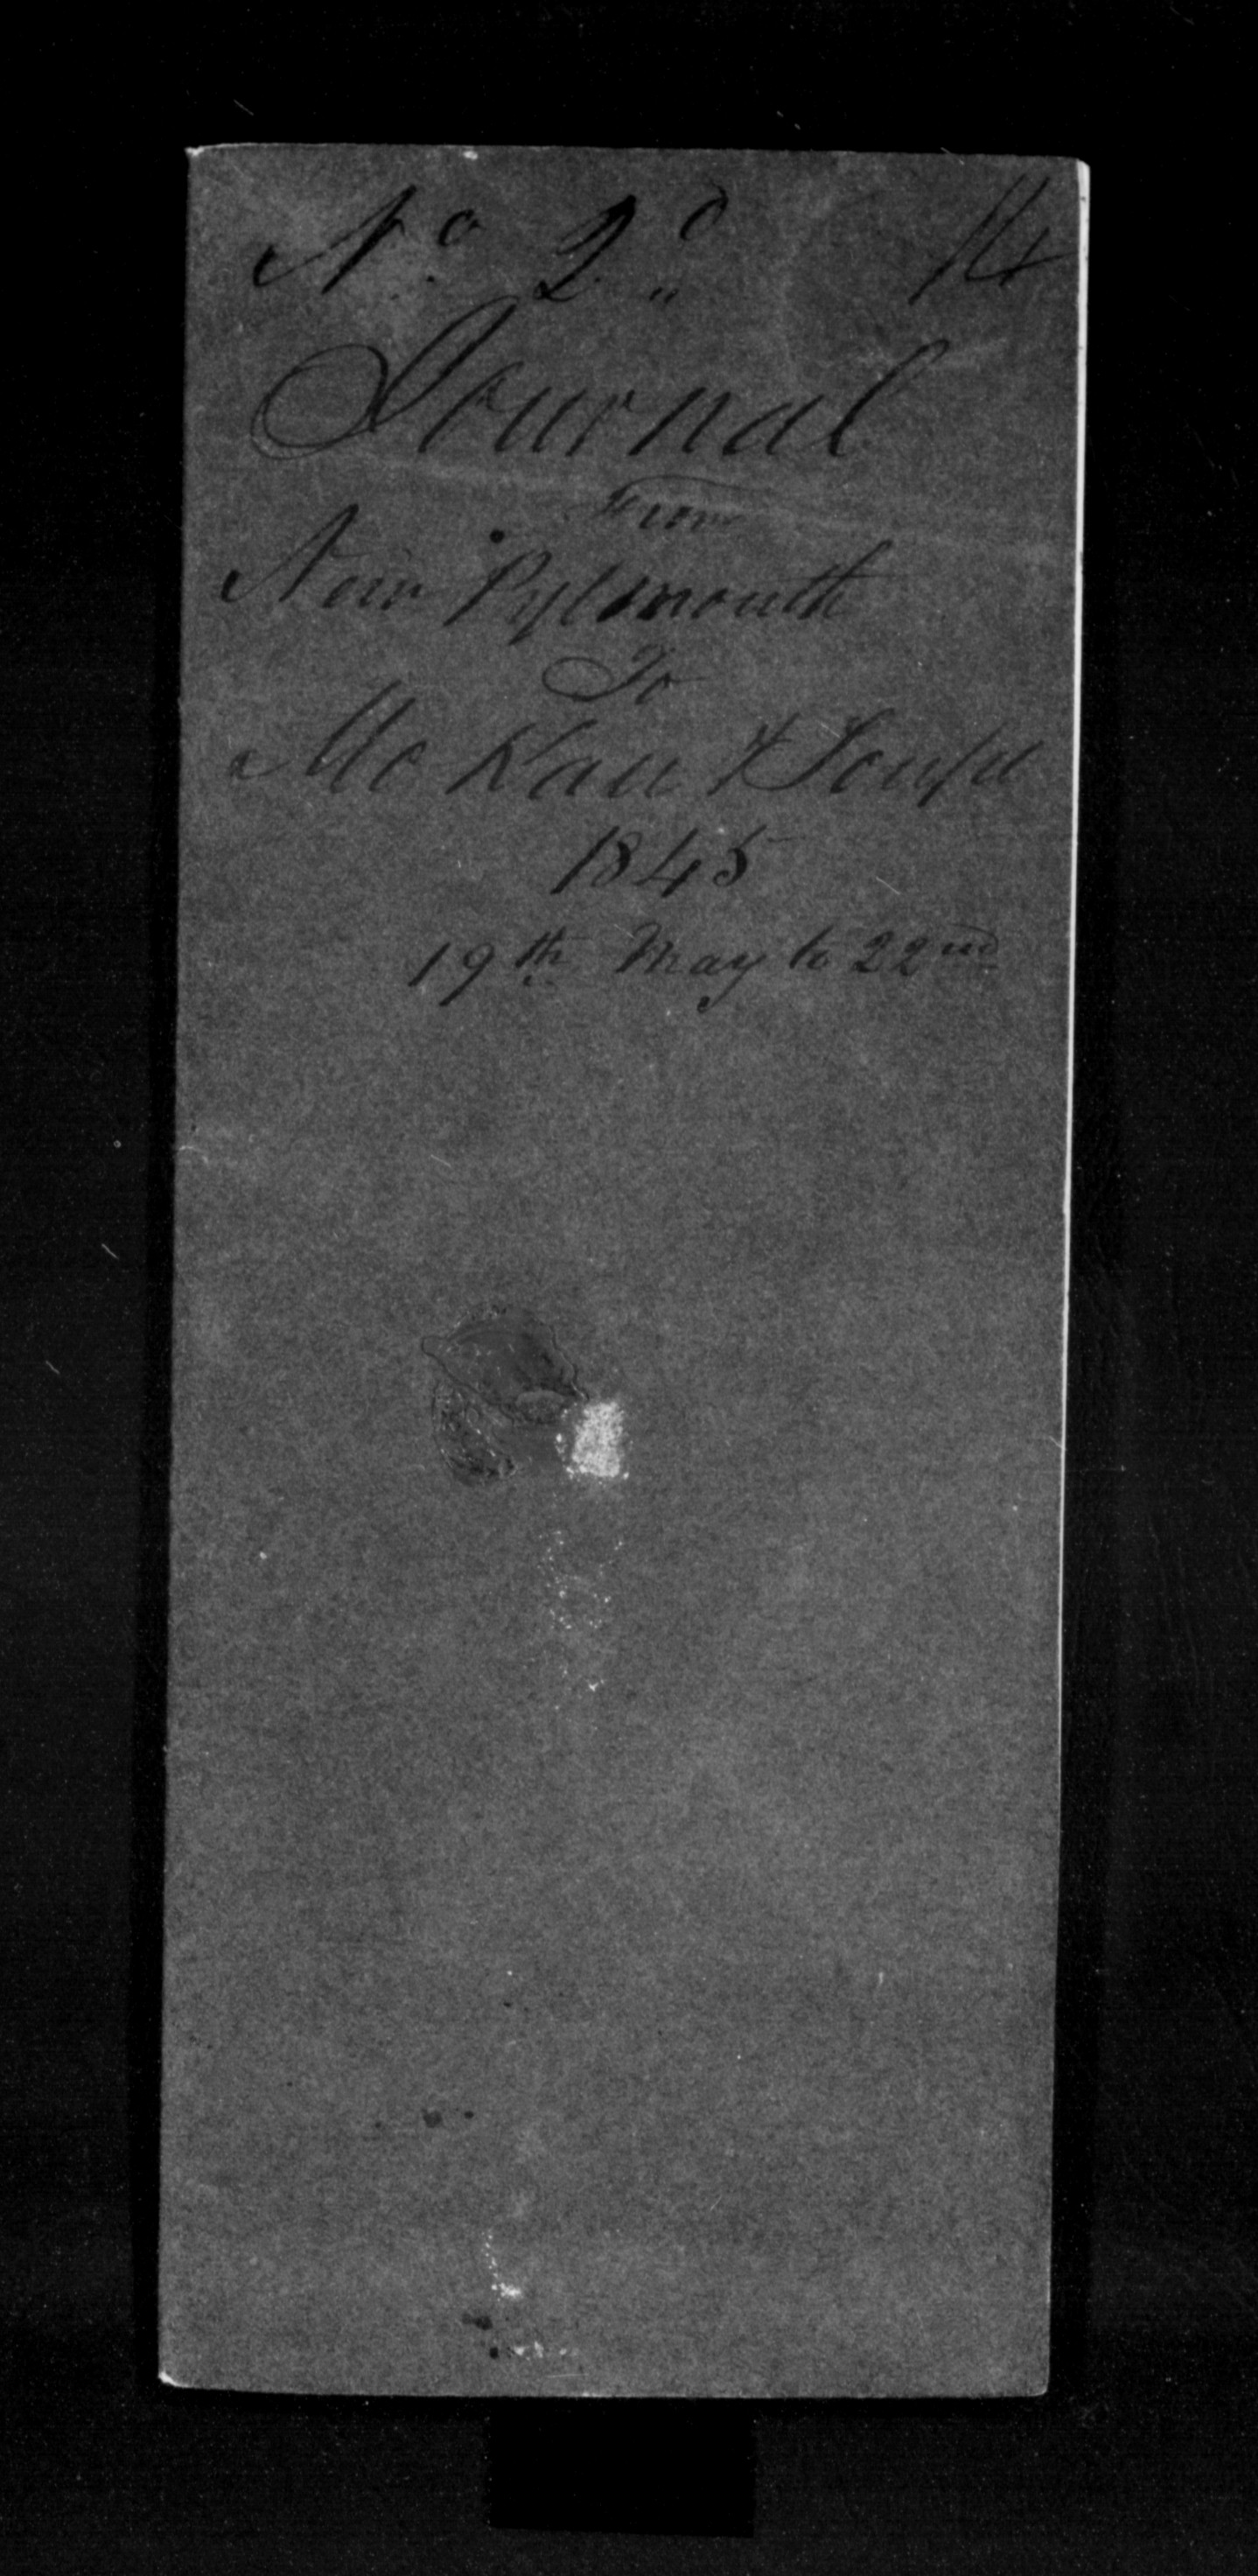 No. 2d 14
Journal
From
New Pylmouth
To
Mo Kau &
1845
19th May to 22nd